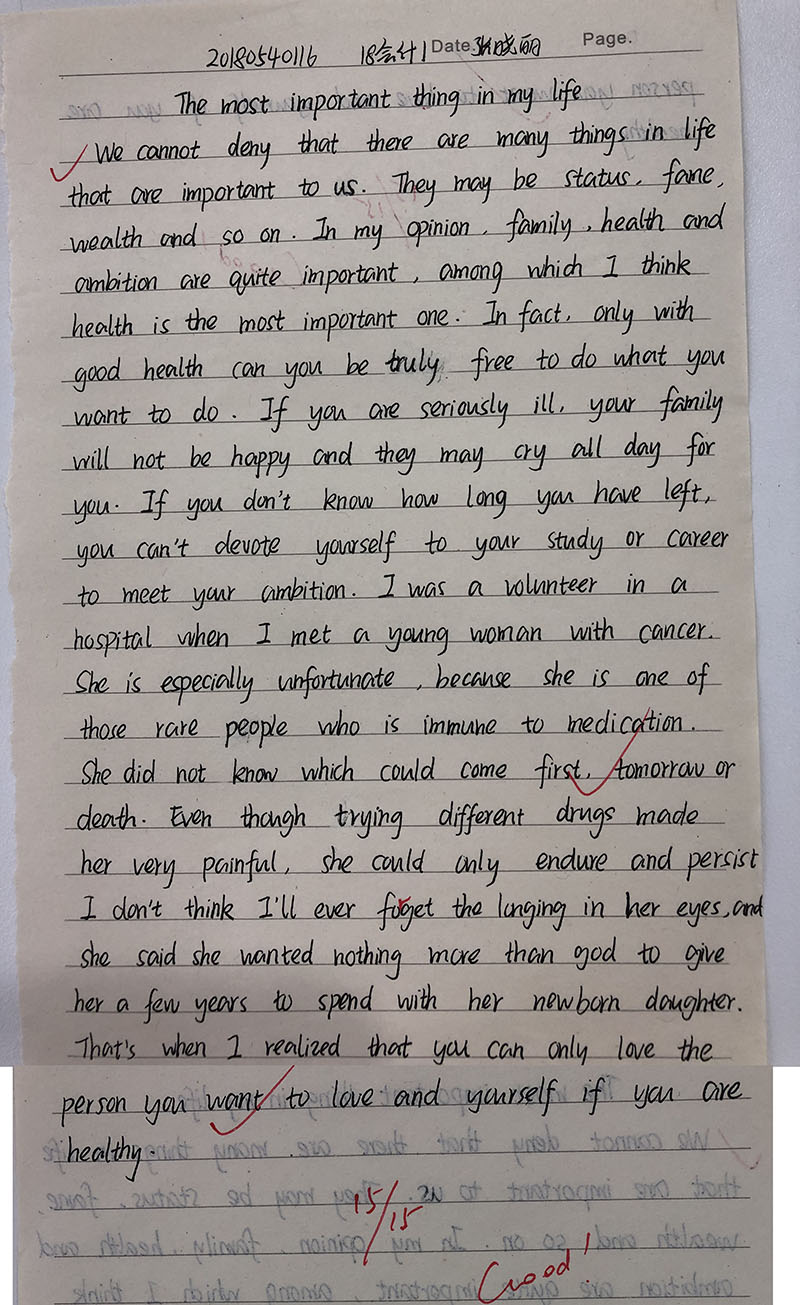 20180540116 18会计1 Date. 张晓丽 Page.
The most important thing in my life
We cannot deny that there are many things in life
that are important to us. They may be status, fame,
wealth and so on. In my opinion, family, health and
ambition are quite important, among which I think
health is the most important one. In fact, only with
good health can you be truly free to do what you
want to do. If you are seriously ill, your family
will not be happy and they may cry all day for
you. If you don't know how long you have left,
you can't devote yourself to your study or career
to meet your ambition. I was a volunteer in a
hospital when I met a young woman with cancer.
She is especially unfortunate, because she is one of
those rare people who is immune to medication.
She did not know which could come first, tomorrow or
death. Even though trying different drugs made
her very painful, she could only endure and persist
I don't think I'll ever forget the longing in her eyes, and
she said she wanted nothing more than god to give
her a few years to spend with her newborn daughter.
That's when I realized that you can only love the
person you want to love and yourself if you are
healthy.
15/15
Good!